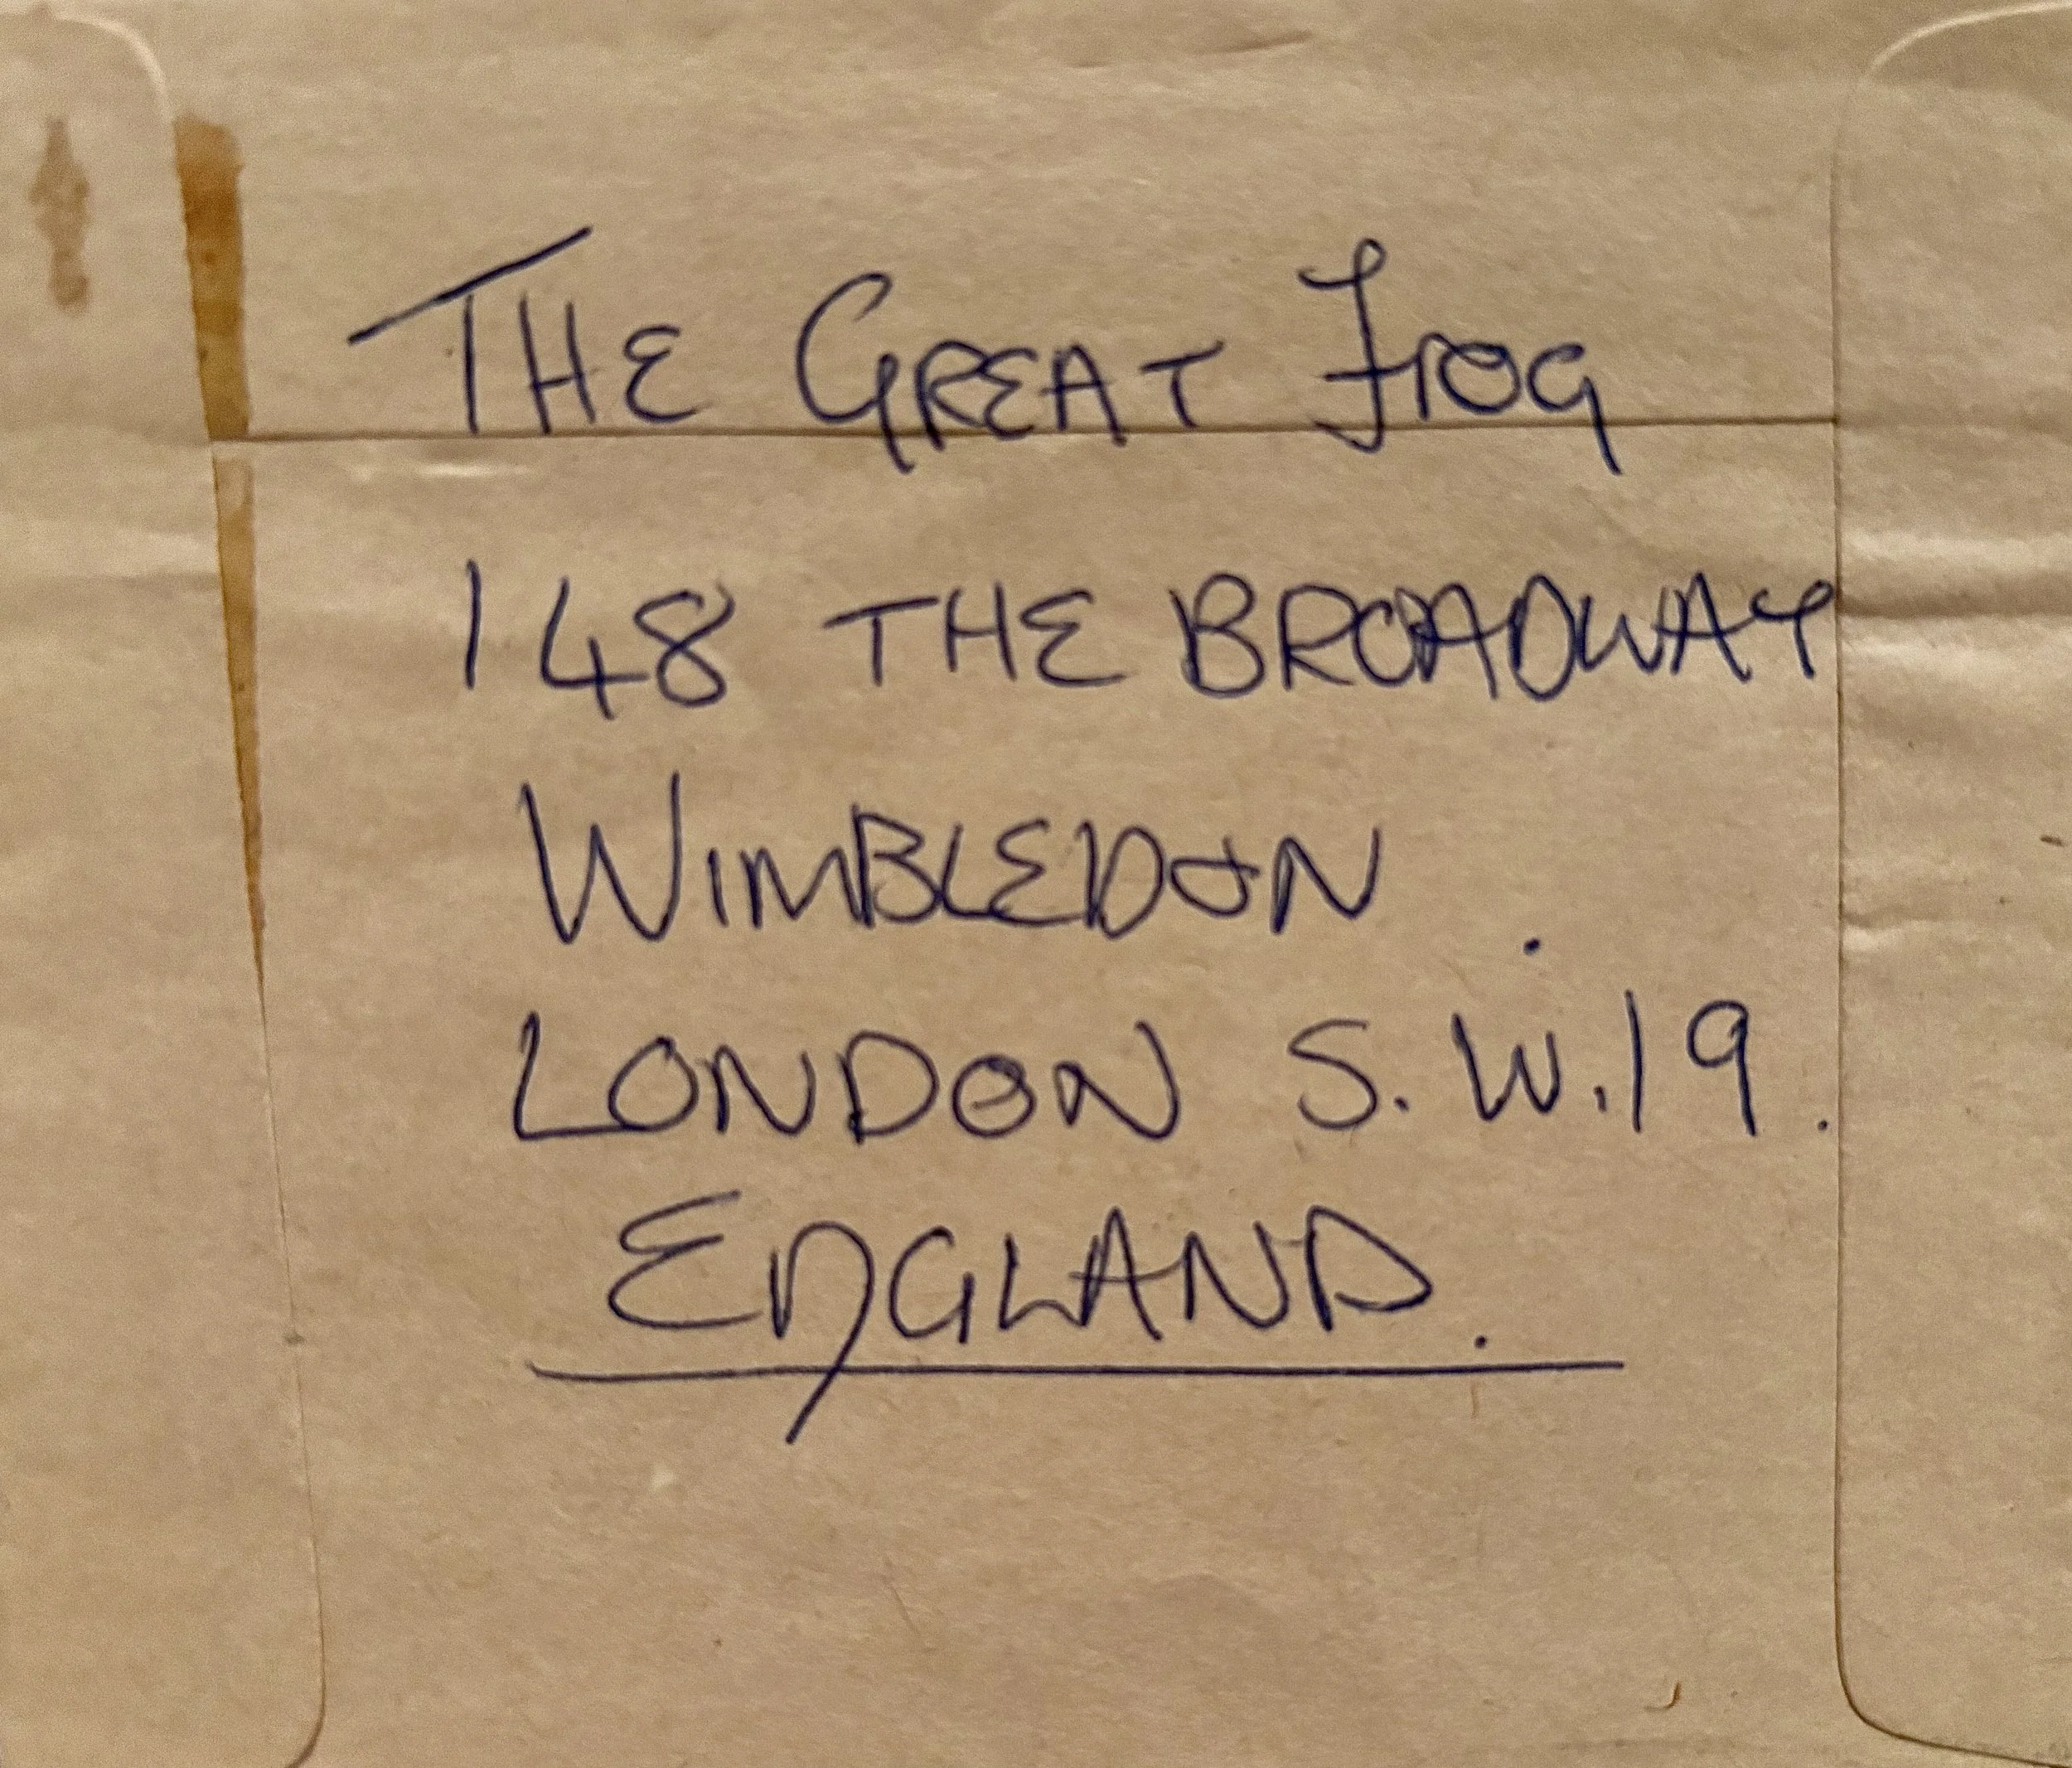 THE GREAT FROG
148 THE BROADWAY
WIMBLEDON.
LONDON S.W.19.
ENGLAND.